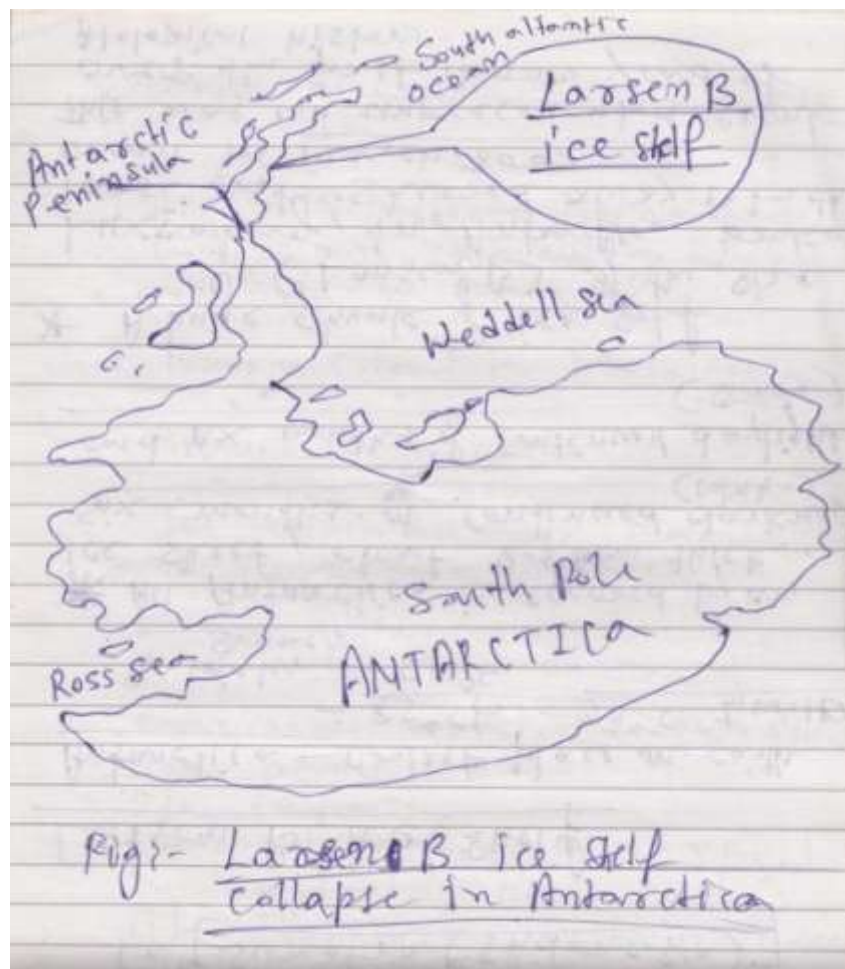 South altantic
ocean
Larsen B
ice shelf
Antarctic
Peninsula
Weddell sea
South Pole
ANTARCTICa
Ross sea
Fig:- Larsen B ice shelf
collapse in Antarctica